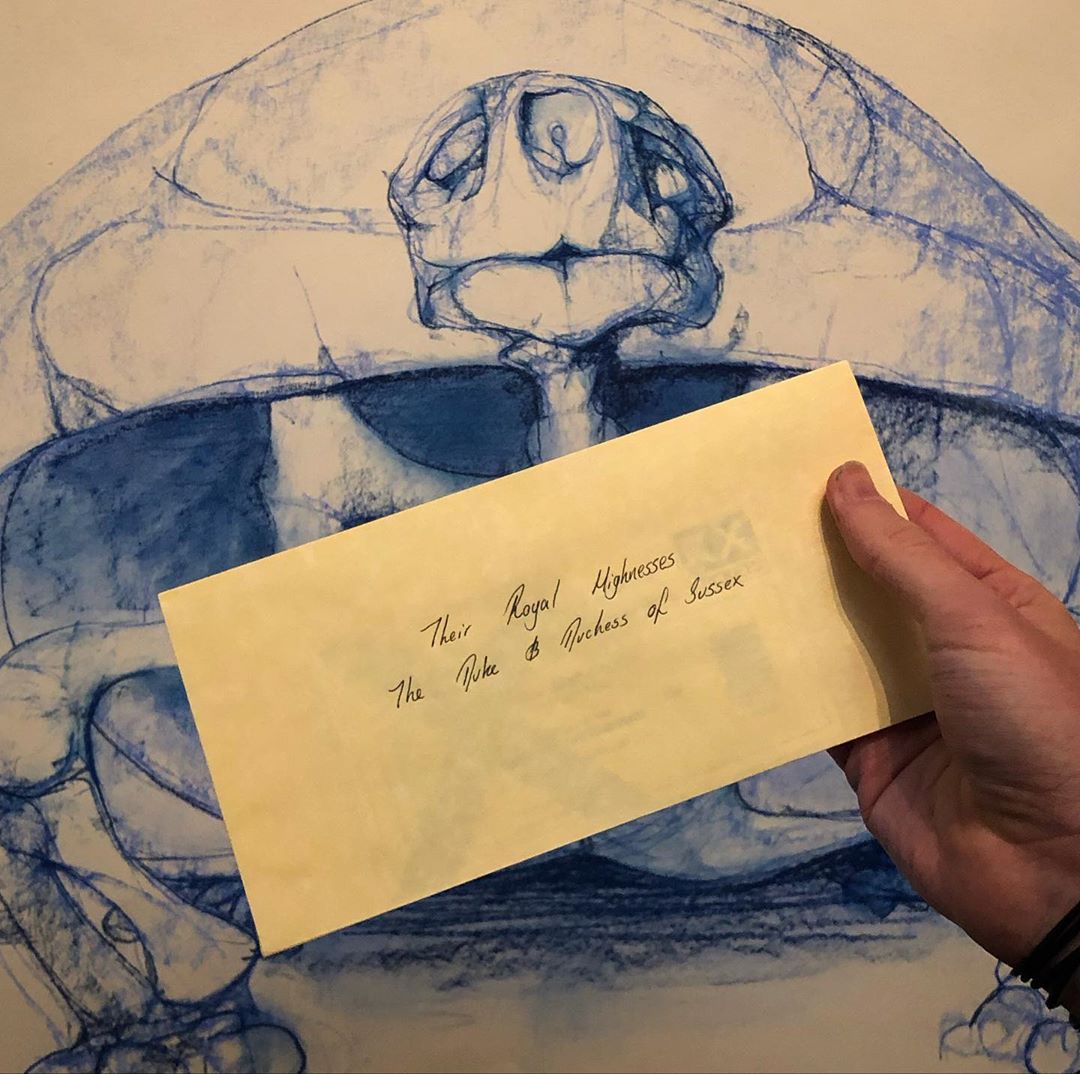 Their Royal Highnesses
The Duke & Duchess of Sussex